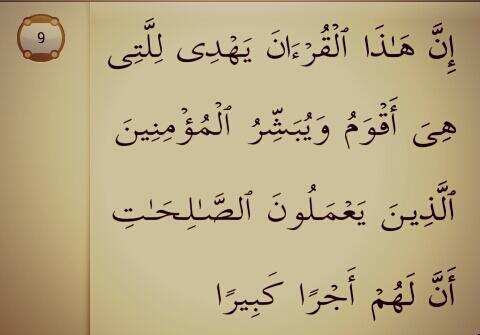 9
إِنَّ هَـٰذَا ٱلْقُرْءَانَ يَهْدِى لِلَّتِى
هِىَ أَقْوَمُ وَيُبَشِّرُ ٱلْمُؤْمِنِينَ
ٱلَّذِينَ يَعْمَلُونَ ٱلصَّـٰلِحَـٰتِ
أَنَّ لَهُمْ أَجْرًا كَبِيرًا